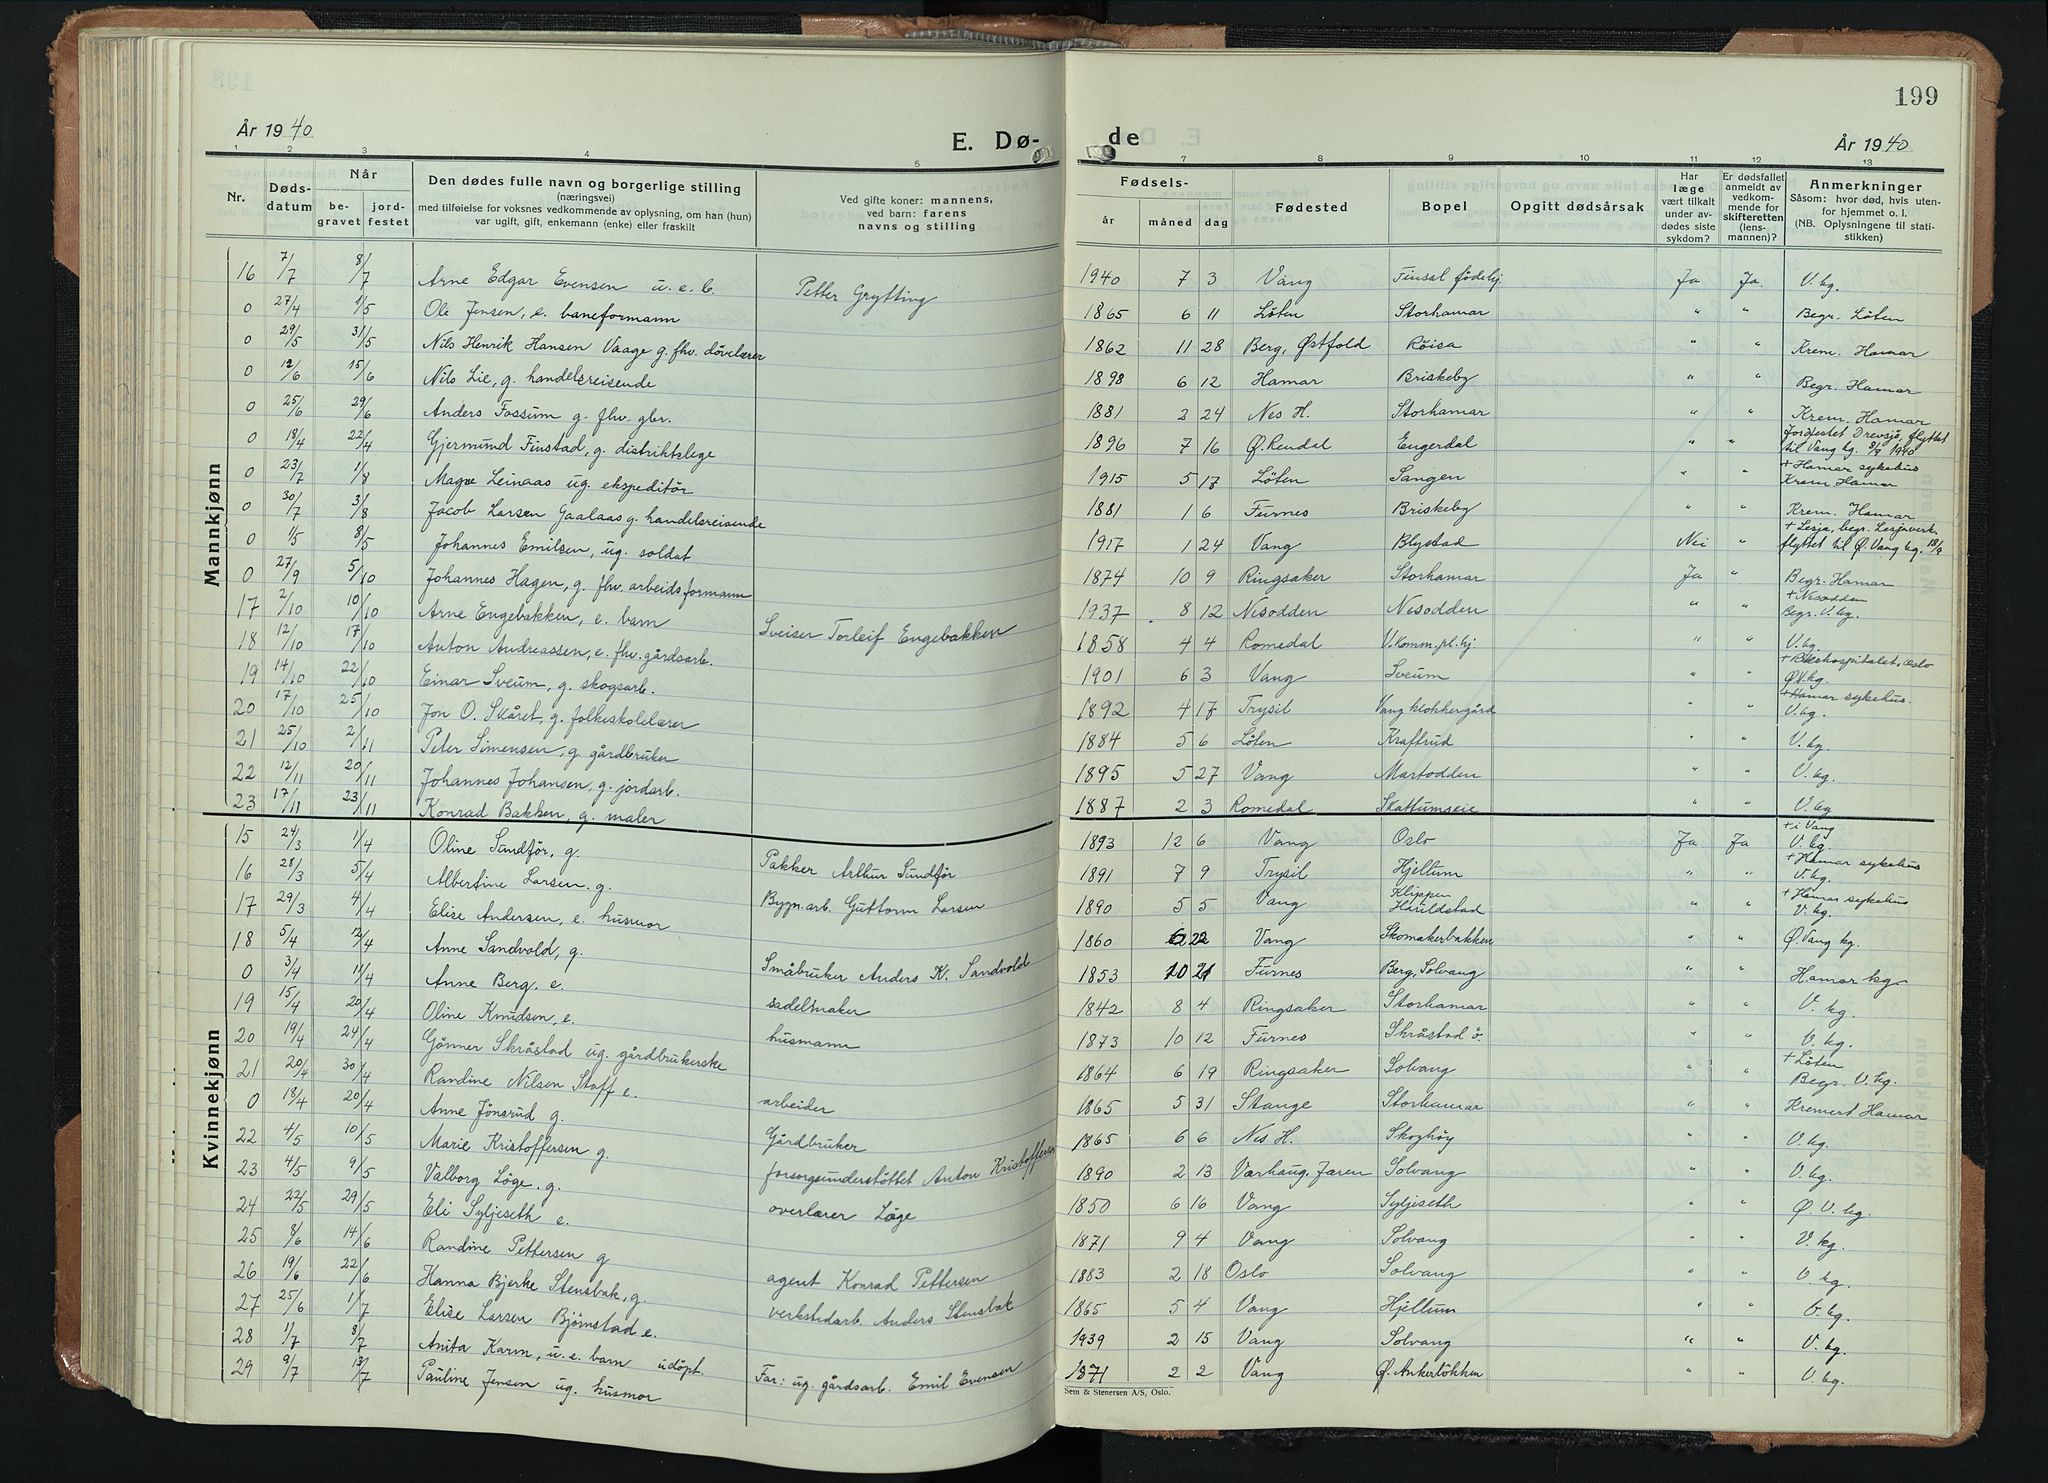 199
År 1940
E. Dø-
de
År 1940
1 2 3 4 5 7 8 9 10 11 12 13
Nr.
Døds-
datum
Når
be-
gravet
jord-
festet
Den dødes fulle navn og borgerlige stilling
(næringsvei)
med tilføielse for voksnes vedkommende av oplysning, om han (hun)
var ugift, gift, enkemann (enke) eller fraskilt
Ved gifte koner: mannens,
ved barn: farens
navns og stilling
Fødsels-
år måned dag
Fødested
Bopel
Opgitt dødsårsak
Har
læge
vært tilkalt
under av-
dødes siste
sykdom?
Er dødsfallet
anmeldt av
vedkom-
mende for
skifteretten
(lens-
mannen)?
Anmerkninger
Såsom: hvor død, hvis uten-
for hjemmet o. l.
(NB. Oplysningene til stati-
stikken)
Mannkjønn
16 7/7 8/7 Arne Edgar Evensen u. e. b. Petter Grytting 1940 7 3 Vang Finsal fødehj. Ja Ja. V. kg.
0 27/4 1/5 Ole Jensen, e. baneformann 1865 6 11 Löten Storhamar " " Begr. Löten
0 29/5 31/5 Nils Henrik Hansen Vaage g. fhv. døvelærer 1862 11 28 Berg, Østfold Röisa " " Krem. Hamar
0 12/6 15/6 Nils Lie, g. handelsreisende 1898 6 12 Hamar Briskeby " " Begr. Hamar
0 25/6 29/6 Anders Fossum g. fhv. gbr. 1881 2 24 Nes H. Storhamar " " Krem. Hamar
0 18/4 22/4 Gjermund Finstad, g. distriktslege 1896 7 16 Ø. Rendal Engerdal " " Jordfestet Drevsjø, flyttet
til Vang kg. 9/9 1940
0 23/7 1/8 Magne Leinaas ug. ekspeditör 1915 5 17 Löten Sangen " " + Hamar sykehus
Krem. Hamar
0 30/7 3/8 Jacob Larsen Gaalaas g. handelsreisende 1881 1 6 Furnes Briskeby " " Krem. Hamar
0 1/5 8/5 Johannes Emilsen, ug. soldat 1917 1 24 Vang Blystad Nei " + Lesja, begr. Lesjaverk.
flyttet til Ø. Vang kg. 18/9
0 27/9 5/10 Johannes Hagen, g. fhv. arbeidsformann 1874 10 9 Ringsaker Storhamar Ja " Begr. Hamar
17 2/10 10/10 Arne Engebakken, e. barn Sveiser Torleif Engebakken 1937 8 12 Nesodden Nesodden " " + Nesodden
Begr. V. kg.
18 12/10 17/10 Anton Andreassen, e. fhv. gårdsarb. 1858 4 4 Romedal V. komm. pl. hj. " " V. kg.
19 14/10 22/10 Einar Sveum, g. skogsarb. 1901 6 3 Vang Sveum " " + Rikshospitalet, Oslo
Ø V. kg.
20 17/10 25/10 Jon O. Skåret, g. folkeskolelærer 1892 4 17 Trysil Vang klokkergård " " + Hamar sykehus.
V. kg.
21 25/10 2/11 Peter Simensen, g. gårdbruker 1884 5 6 Löten Kraftrud " " V. kg
22 12/11 20/11 Johannes Johansen, g. jordarb. 1895 5 27 Vang Martodden " " V. kg.
23 17/11 23/11 Konrad Bakken, g. maler 1887 2 3 Romedal Skattumseie " " V. kg
Kvinnekjønn
15 24/3 1/4 Oline Sundför, g. Pakker Arthur Sundför 1893 12 6 Vang Oslo Ja Ja + i Vang
V. kg.
16 28/3 5/4 Albertine Larsen, g. Bygn.arb. Guttorm Larsen 1891 7 9 Trysil Hjellum " " + Hamar sykehus
V. kg.
17 29/3 4/4 Elise Andersen, e. husmor 1890 5 5 Vang Klippen
Haraldstad " " + Hamar sykehus
V. kg.
18 5/4 12/4 Anne Sandvold, g. Småbruker Anders K. Sandvold 1860 22 Vang Skomakerbakken " " Ø. Vang kg.
0 3/4 11/4 Anne Berg. e. sadelmaker 1853 10 21 Furnes Berg, Solvang " " Hamar kg.
19 15/4 20/4 Oline Knudsen, e. husmann 1842 8 4 Ringsaker Storhamar " " V. kg.
20 19/4 24/4 Gönner Skråstad ug. gårdbrukerske 1873 10 12 Furnes Skråstad ö. " " V. kg.
21 20/4 30/4 Randine Nilsen Stoff e. arbeider 1864 6 19 Ringsaker Solvang " " + Löten
Begr. V. kg.
0 18/4 20/4 Anne Jönsrud g. Gårdbruker 1865 5 31 Stange Storhamar " " Kremert Hamar
22 4/5 10/5 Marie Kristoffersen g. forsorgsunderstöttet Anton Kristoffersen 1865 6 6 Nes H. Skoghöy " " V. kg.
23 4/5 9/5 Valborg Löge. g. overlærer Löge 1890 2 13 Varhaug, Jæren Solvang " " V. kg.
24 22/5 29/5 Eli Syljeseth e. 1850 6 16 Vang Syljeseth " " Ø. V. kg.
25 8/6 14/6 Randine Pettersen g agent Konrad Pettersen 1871 9 4 Vang Solvang " " V. kg.
26 19/6 22/6 Hanna Bjerke Stensbak, g. verkstedarb. Anders Stensbak 1883 2 18 Oslo Solvang " " V. kg.
27 25/6 1/7 Elise Larsen Bjørnstad e. 1865 5 4 Vang Hjellum " " V. kg.
28 1/7 8/7 Anita Karin, u. e. barn udöpt. Far: ug. gårdsarb. Emil Evensen 1939 2 15 Vang Solvang " " V. kg.
29 9/7 13/7 Pauline Jensen ug. husmor 1871 2 2 Vang Ø. Ankerlökken " " V. kg.
Sem & Stenersen A/S, Oslo.